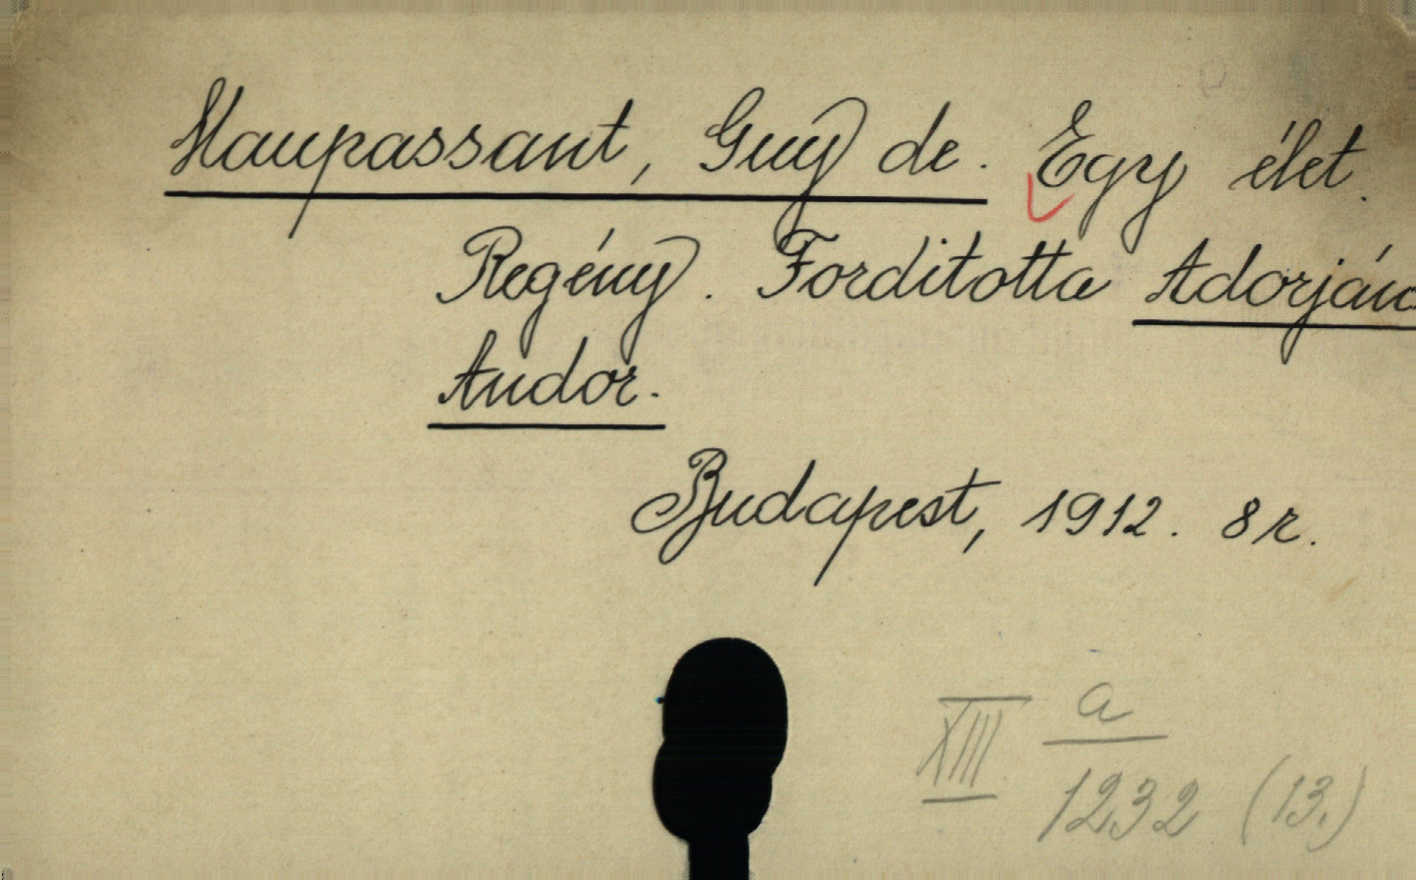 Maupassant, Guy de. Egy élet.
Regény. Forditotta Adorján
Andor.
Budapest, 1912. 8r.
XIII a
1232 (13.)